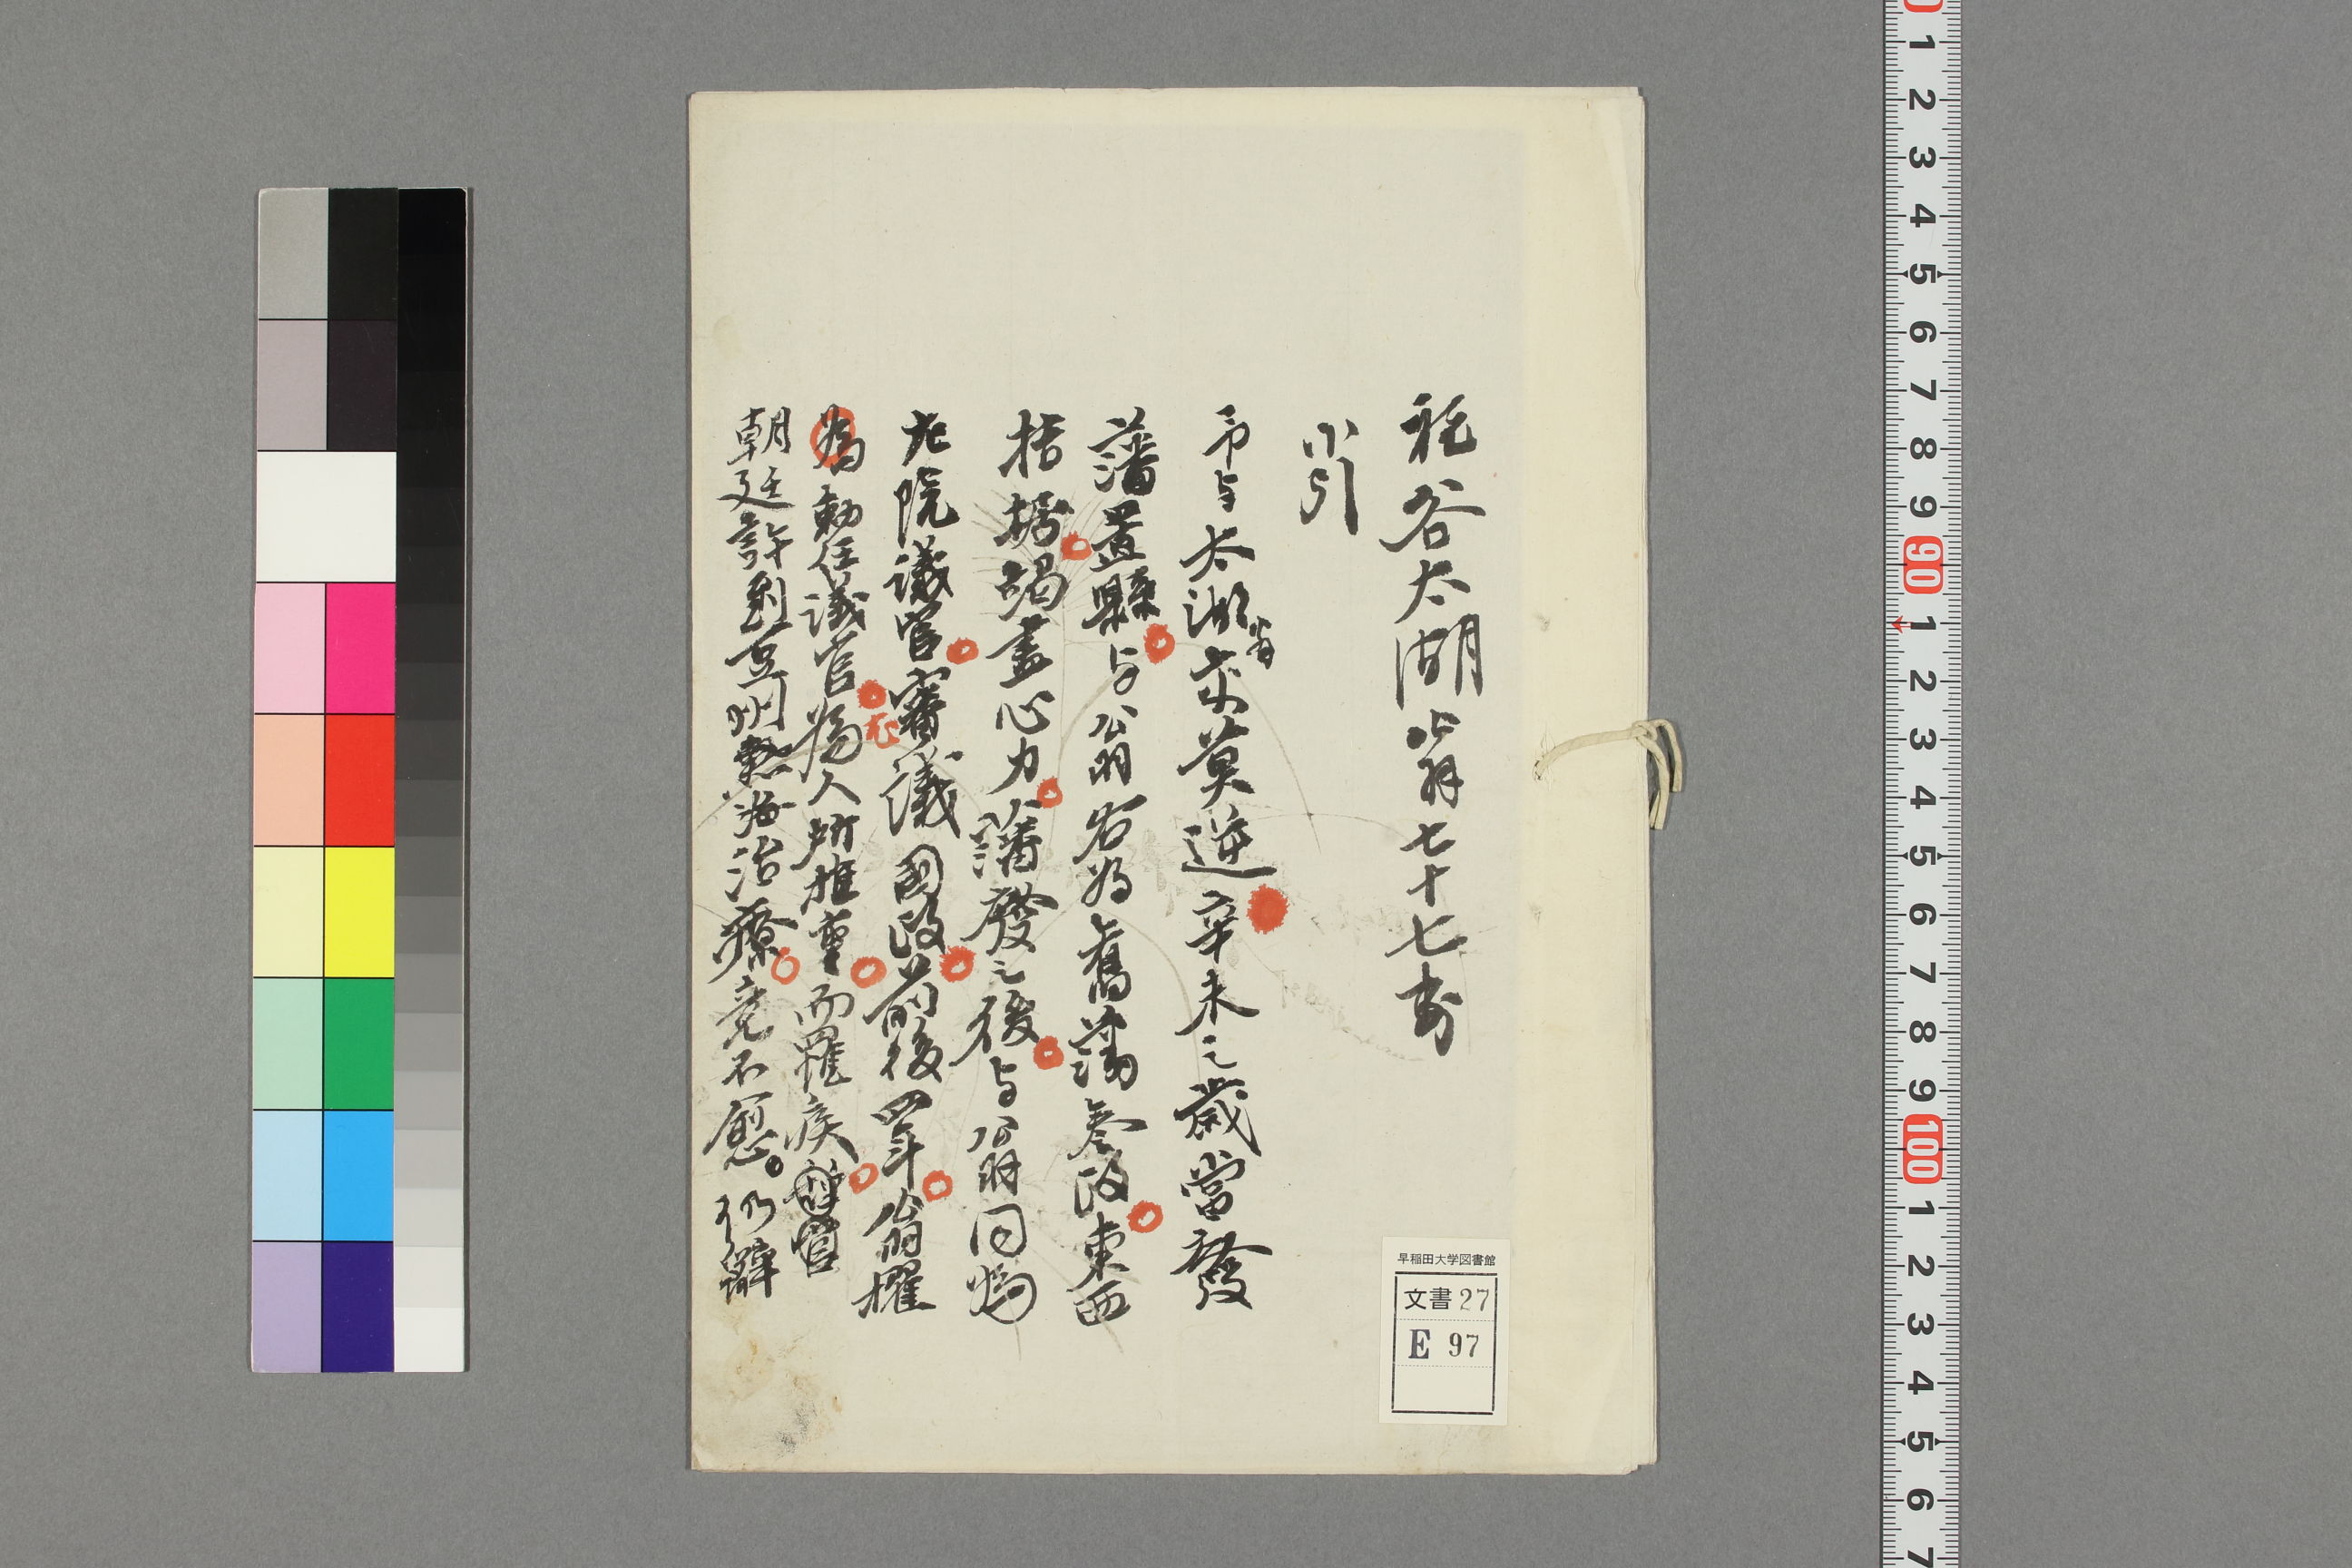 祝谷太湖翁七十七寿
小引
予与太湖翁交莫逆辛未之歳當發
藩置縣与公翁名為舊藩参政東西
拮据竭盡心力藩發之後与公翁同為
左院議官審議國政前後四年公翁擢
為勅任議官為人所推重而罹疾
朝廷許到豆州熱海治療竟不愈。仍辭
尤
早稲田大学図書館
文書27
E 97